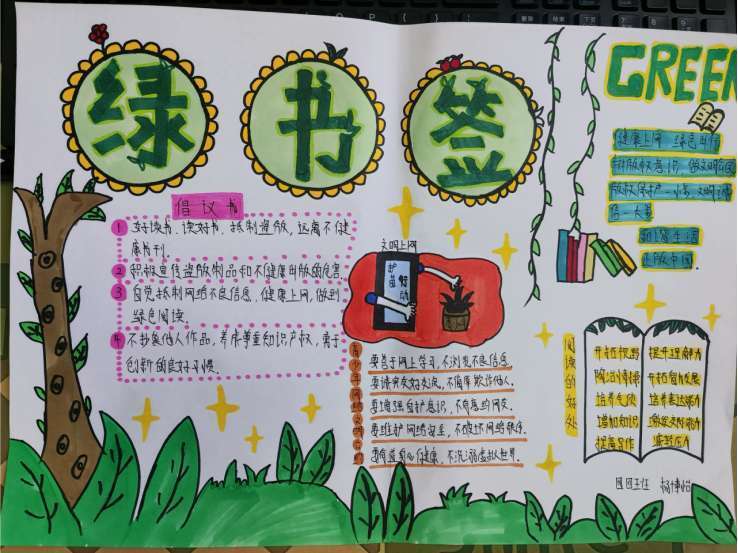 绿书签
GREEN
倡议书
1 好读书、读好书、抵制盗版，远离不健
康书刊。
2 积极宣传盗版制品和不健康出版物危害
3 自觉抵制网络不良信息，健康上网，做到
绿色阅读。
4 不抄袭他人作品，养成尊重知识产权，勇于
创新的良好习惯。
文明上网
护苗
青少年网络文明公约
要善于网上学习，不浏览不良信息
要诚实友好交流，不侮辱欺诈他人。
要增强自护意识，不随意约网友。
要维护网络安全，不破坏网络秩序。
要有益身心健康，不沉溺虚拟世界。
健康上网 绿色
版权意识
版权保护
和谐生活
正版中国
阅读的好处
开拓视野
陶冶情操
培养气质
增加知识
提高写作
提升理解力
开拓智力发展
培养表达能力
缓解压力